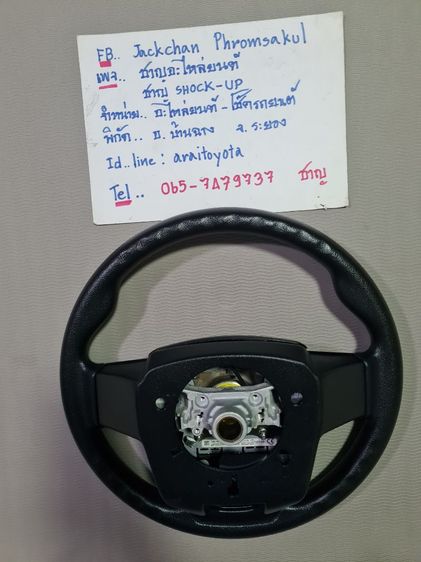 FB.. Jackchan Phromsakul
เพจ.. ชาญอะไหล่ยนต์
ชาญ SHOCK-UP
จำหน่าย.. อะไหล่ยนต์ - โช๊ครถยนต์
พิกัด.. อ. บ้านฉาง จ. ระยอง
Id..line : araitoyota
Tel.. 065-7479737 ชาญ